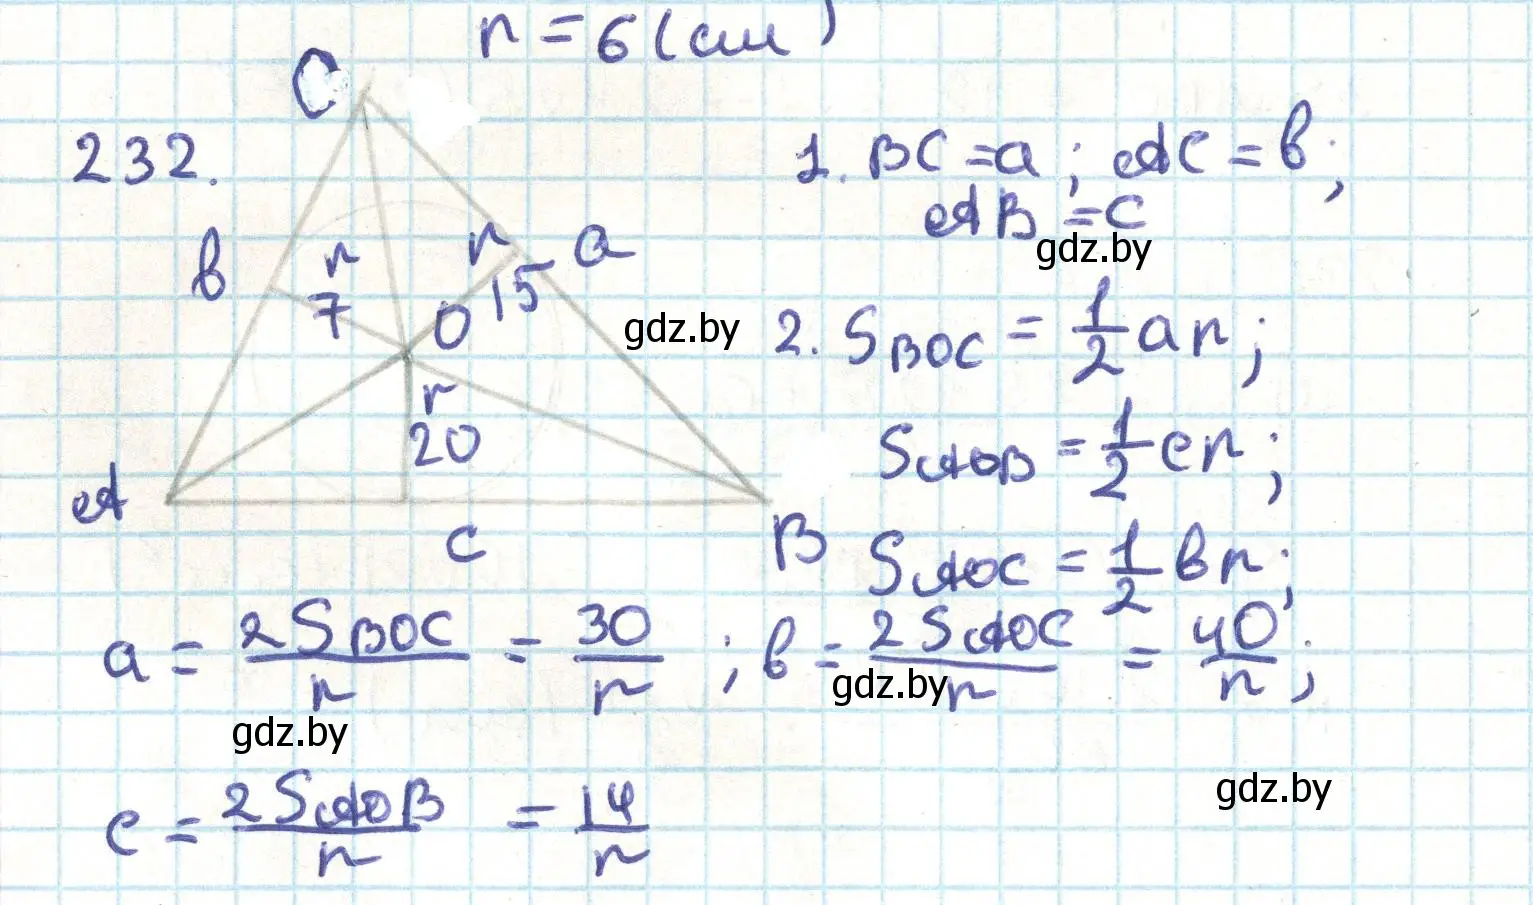 r = 6 (см)
232.
C
b
r
7
r
15
a
O
r
20
A
c
B
1. BC = a; AC = b;
AB = c
gdz.by
gdz.by
2. S_BOC = 1/2 ar;
S_AOB = 1/2 cr;
S_AOC = 1/2 br;
a = 2S_BOC / r = 30 / r; b = 2S_AOC / r = 40 / r;
gdz.by
gdz.by
gdz.by
c = 2S_AOB / r = 14 / r